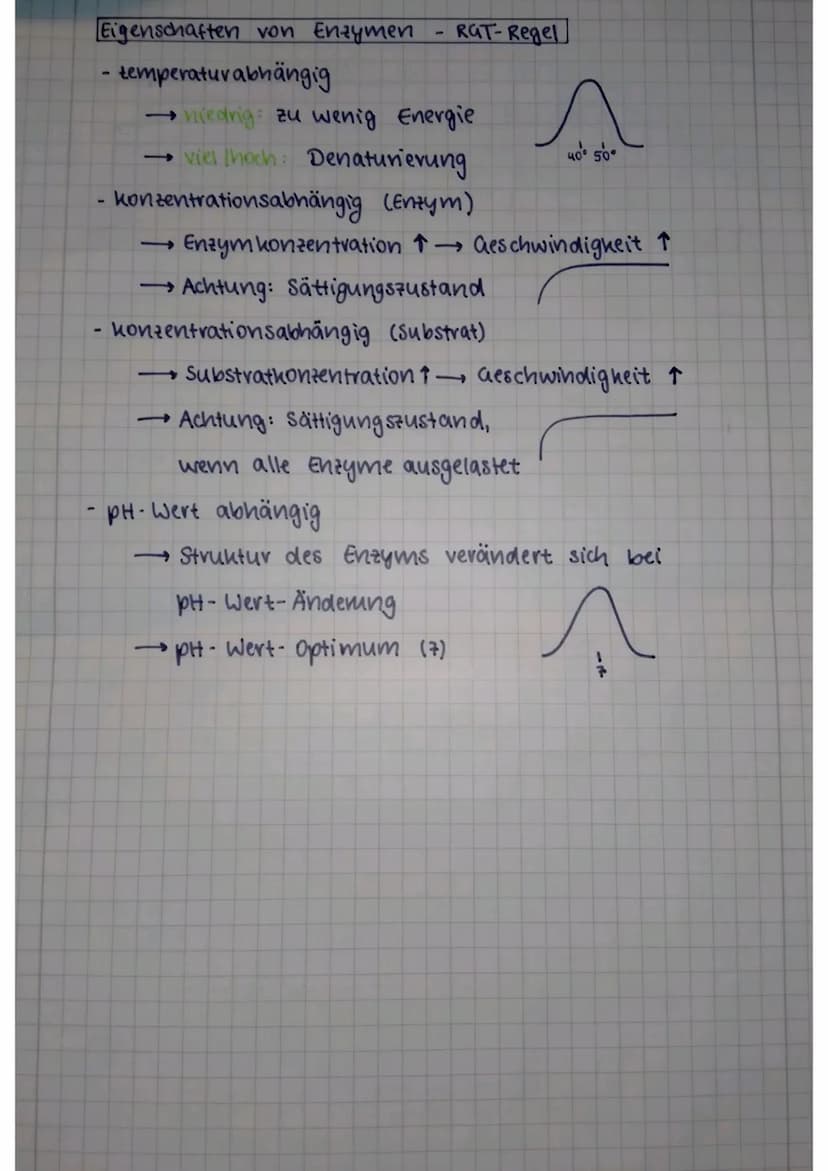 Eigenschaften von Enzymen - RGT-Regel
- temperaturabhängig
→ niedrig: zu wenig Energie
→ viel/hoch: Denaturierung
40° 50°
- konzentrationsabhängig (Enzym)
→ Enzymkonzentration ↑ → Geschwindigkeit ↑
→ Achtung: Sättigungszustand
- konzentrationsabhängig (Substrat)
→ Substratkonzentration ↑ → Geschwindigkeit ↑
→ Achtung: Sättigungszustand,
wenn alle Enzyme ausgelastet
- pH-Wert abhängig
→ Struktur des Enzyms verändert sich bei
pH-Wert-Änderung
→ pH-Wert-Optimum (7)
7